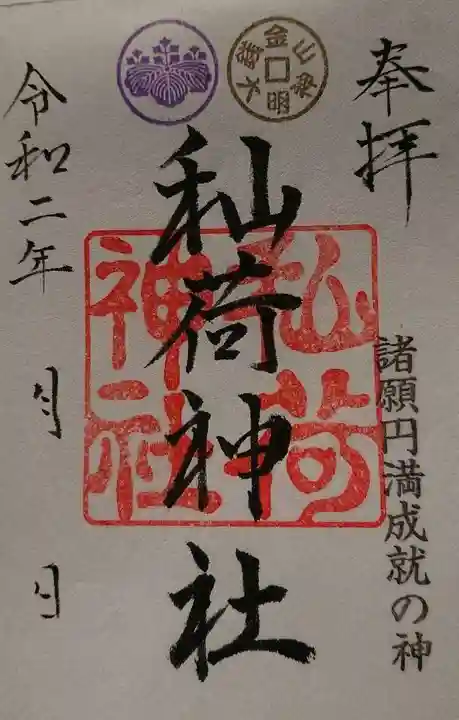 奉拝
諸願円満成就の神
秈荷神社
秈荷
神社
令和二年 月 日